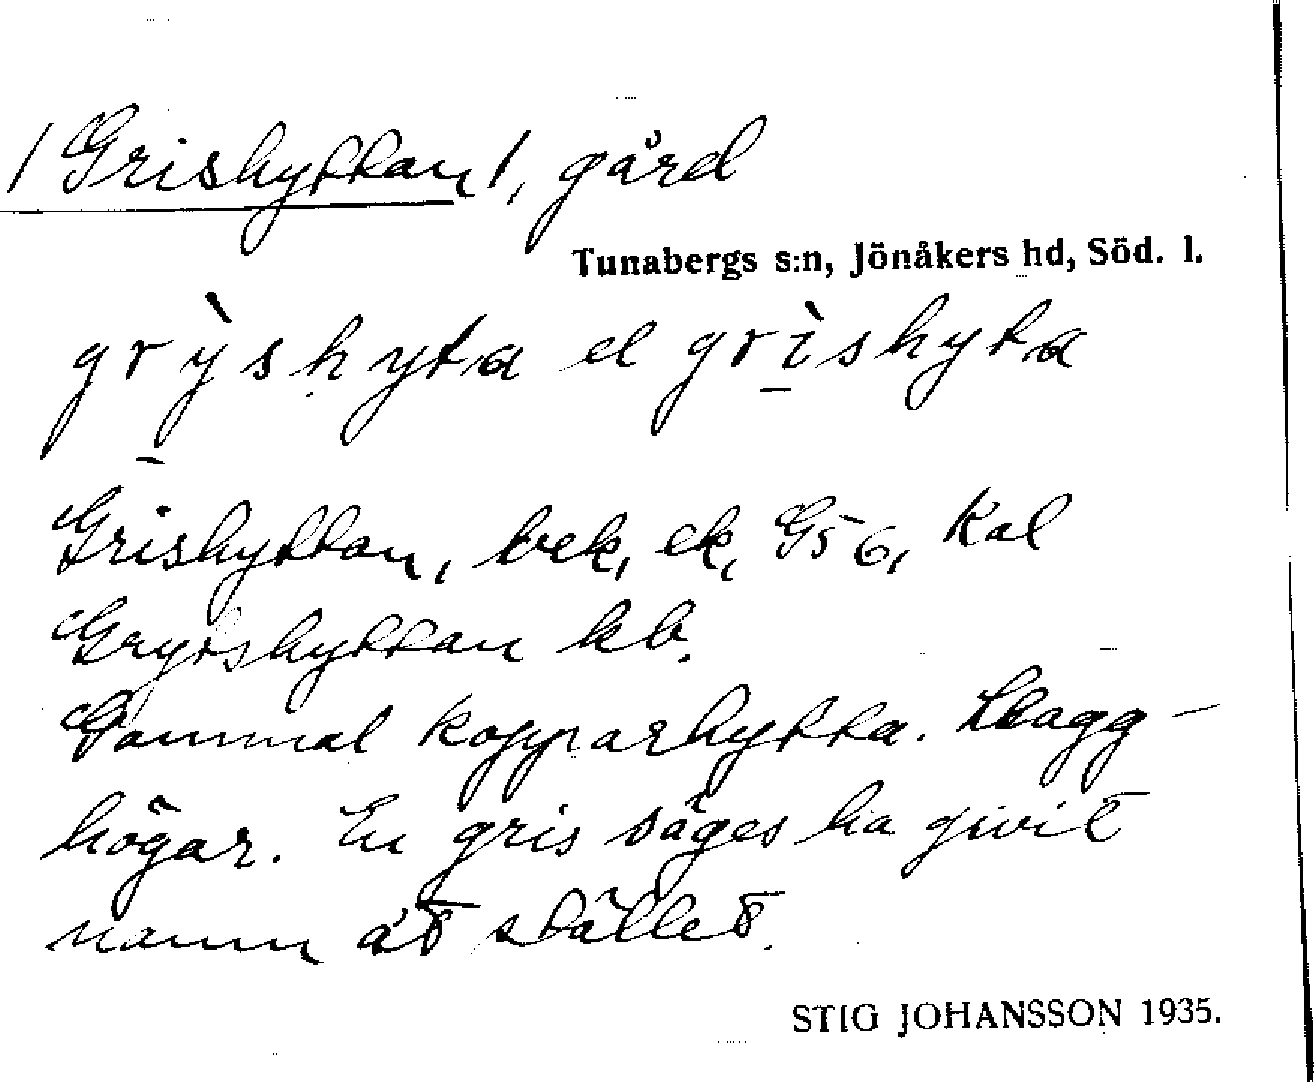 /Grishyttan/, gård
Tunabergs s:n, Jönåkers hd, Söd. l.
grỳshyta el grìshyta
Grishyttan, bek, ek, G56, Kal
Grytshyttan kb.
Gammal kopparhytta. Slagg-
högar. En gris säges ha givit
namn åt stället.
STIG JOHANSSON 1935.